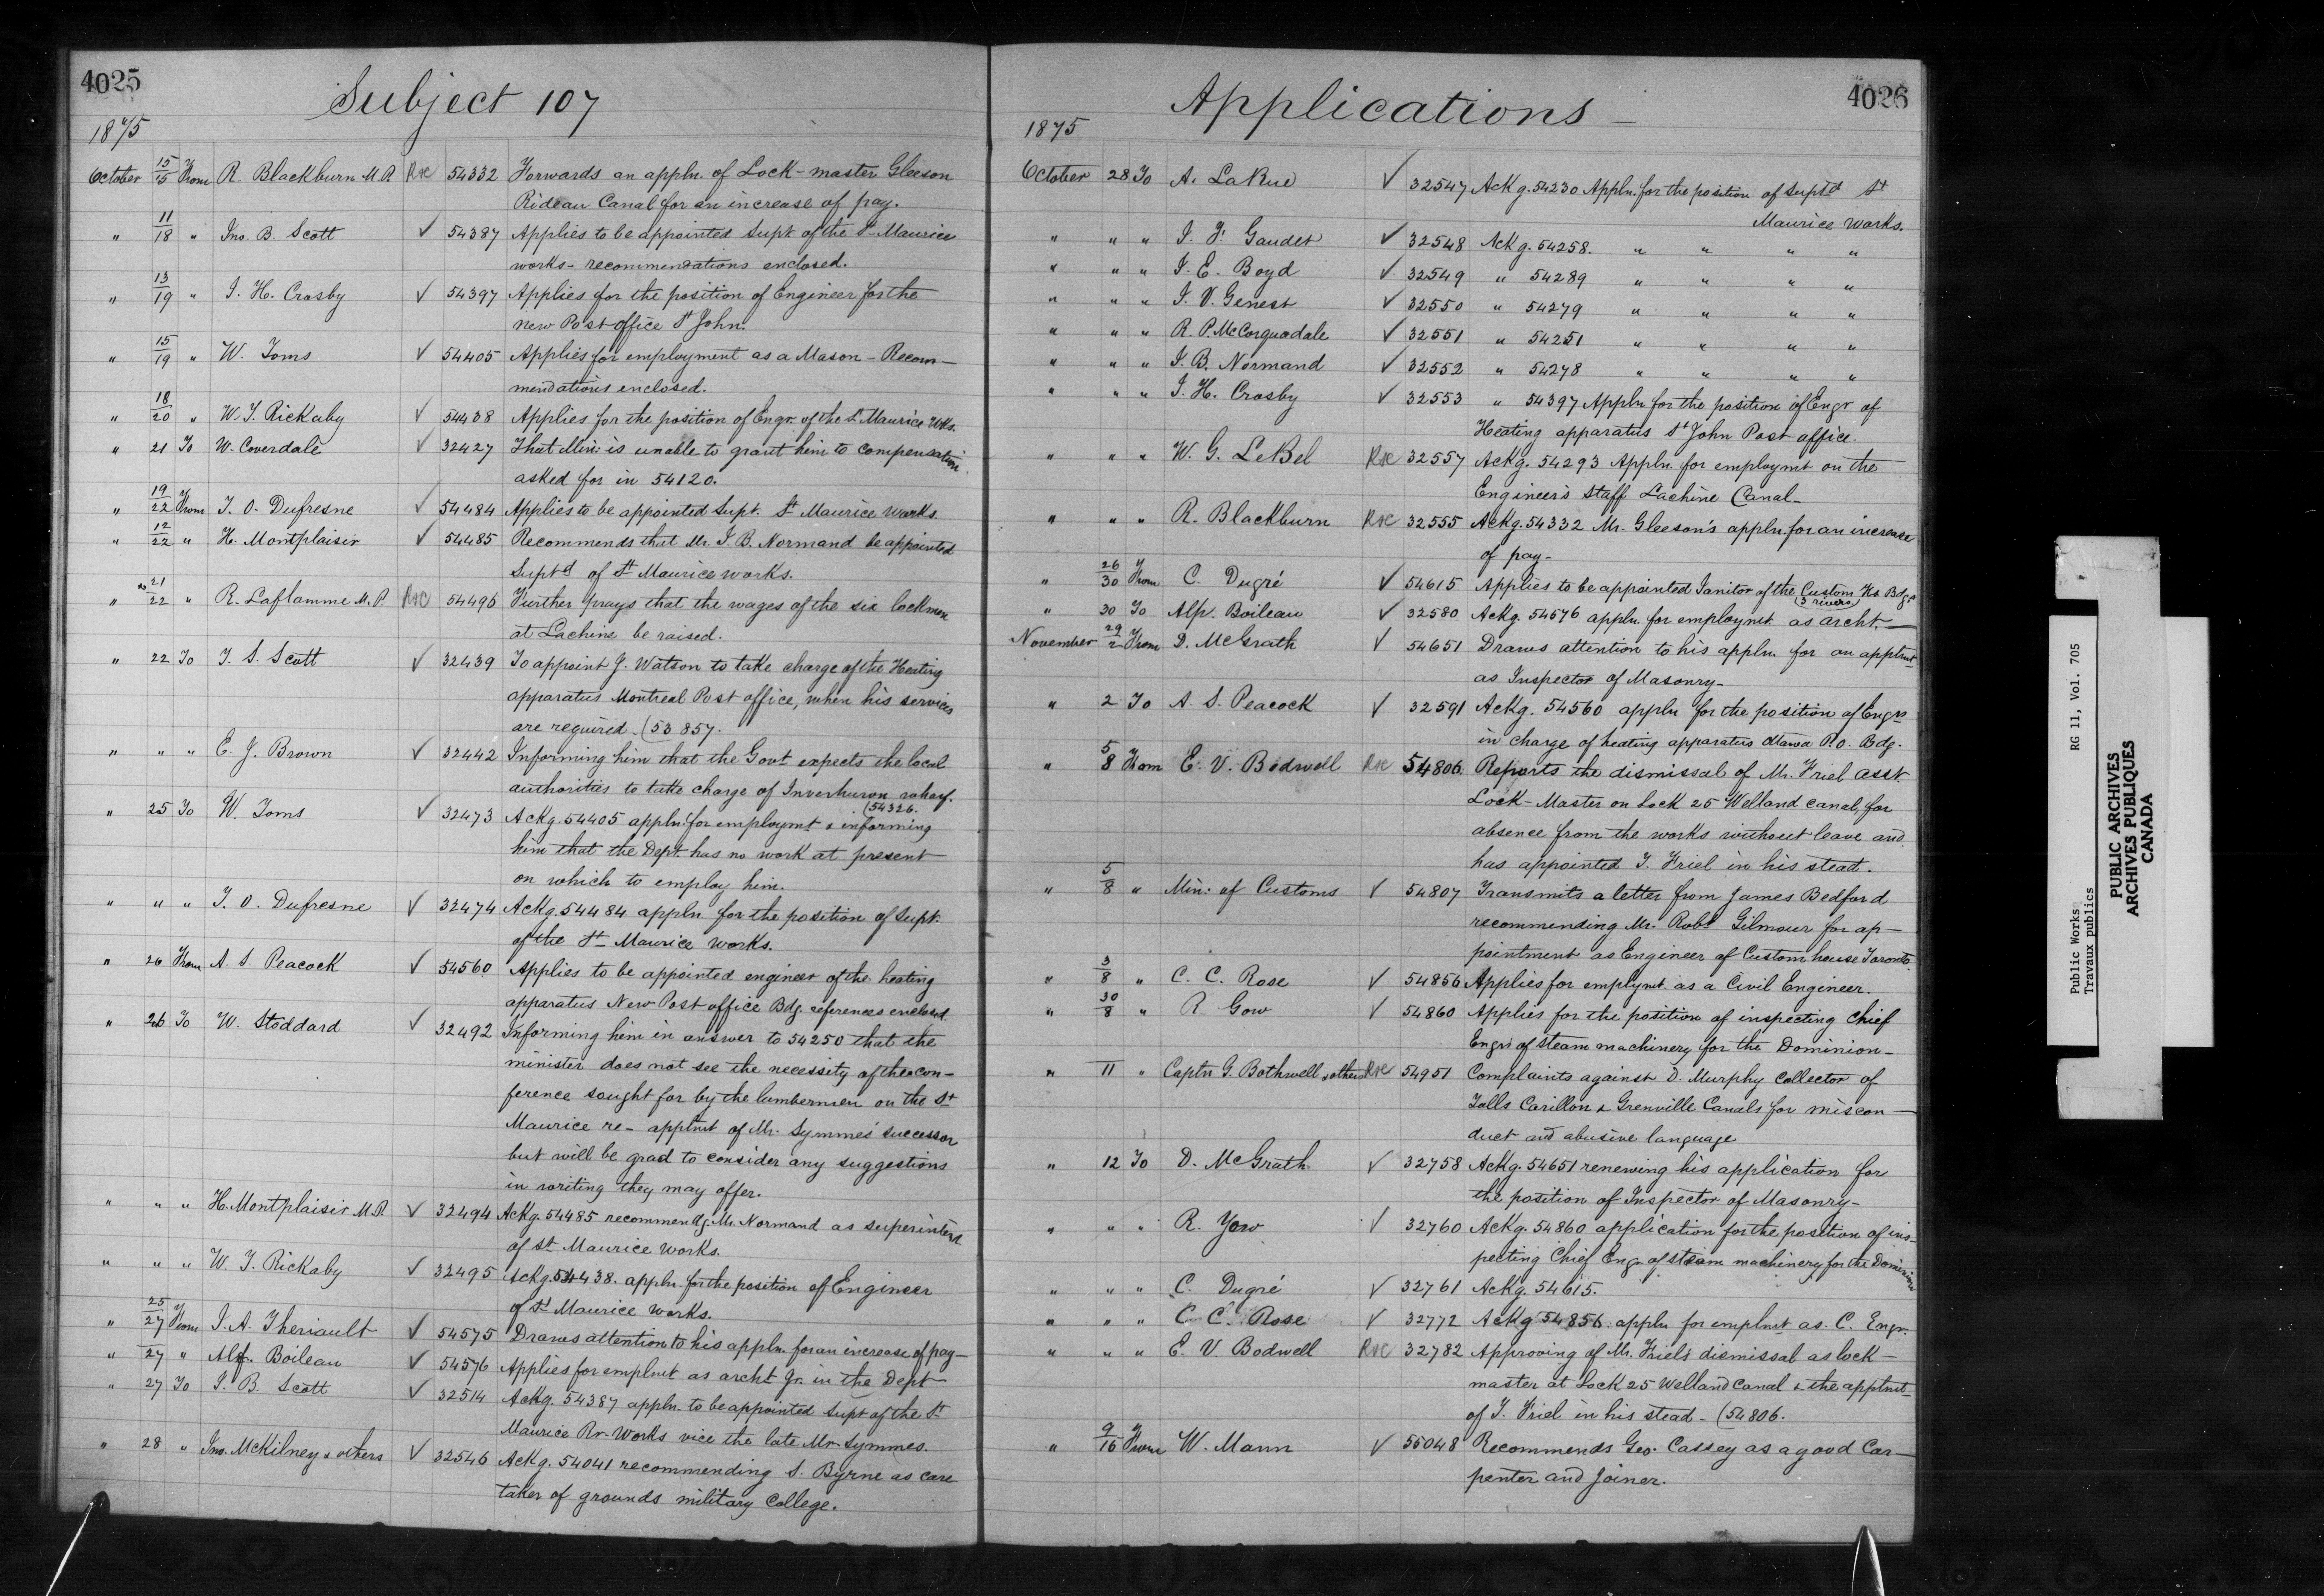 4025
Subject 107
1875
October 15/15 From R. Blackburn M.P. R&C 54332 Forwards an appln. of Lock-master Gleeson
Rideau Canal for an increase of pay.
" 11/18 " Jno. B. Scott ✓ 54387 Applies to be appointed Supt. of the St. Maurice
works - recommendations enclosed.
" 13/19 " J. H. Crosby ✓ 54397 Applies for the position of Engineer for the
new Post office St John.
" 15/19 " W. Toms ✓ 54405 Applies for employment as a Mason - Recom-
mendations enclosed.
" 18/20 " W. J. Rickaby ✓ 54438 Applies for the position of Engr. of the St. Maurice Wks.
" 21 To W. Coverdale ✓ 32427 That Min: is unable to grant him to compensation
asked for in 54120.
" 19/22 From J. O. Dufresne ✓ 54484 Applies to be appointed Supt. St Maurice Works.
" 12/22 " H. Montplaisir ✓ 54485 Recommends that Mr. J. B. Normand be appointed
Suptd of St Maurice works.
" 21/22 " R. Laflamme M.P. R&C 54496 Further prays that the wages of the six lockmen
at Lachine be raised.
" 22 To T. S. Scott ✓ 32439 To appoint J. Watson to take charge of the Heating
apparatus Montreal Post office, when his services
are required. (53857.
" " " E. J. Brown ✓ 32442 Informing him that the Govt expects the local
authorities to take charge of Inverhuron wharf.
(54326.
" 25 To W. Toms ✓ 32473 Ackg. 54405 appln. for employmt & informing
him that the Dept. has no work at present
on which to employ him.
" " " J. O. Dufresne ✓ 32474 Ackg. 54484 appln for the position of Supt.
of the St Maurice Works.
" 26 From A. S. Peacock ✓ 54560 Applies to be appointed engineer of the heating
apparatus New Post office Bdg. references enclosed.
" 26 To W. Stoddard ✓ 32492 Informing him in answer to 54250 that the
minister does not see the necessity of the con-
ference sought for by the lumbermen on the St
Maurice re- apptmt of Mr. Symmes' successor
but will be grad to consider any suggestions
in writing they may offer.
" " " H. Montplaisir M.P. ✓ 32494 Ackg. 54485 recommendg. Mr. Normand as superintend
of St Maurice Works.
" " " W. J. Rickaby ✓ 32495 Ackg. 54438. appln. for the position of Engineer
of St Maurice Works.
" 25/27 From J. A. Theriault ✓ 54575 Draws attention to his appln. for an increase of pay-
" 27 " Alf. Boileau ✓ 54576 Applies for emplmt as archt Jr. in the Dept
" 27 To J. B. Scott ✓ 32514 Ackg. 54387 appln. to be appointed Supt of the St
Maurice Rr. Works vice the late Mr. Symmes.
" 28 " Jno. McKilney & others ✓ 32546 Ackg. 54041 recommending S. Byrne as care
taker of grounds military College.
4026
Applications -
1875
October 28 To A. LaRue ✓ 32547 Ackg. 54230 Appln. for the position of Suptd St
Maurice Works.
" " " J. F. Gaudet ✓ 32548 Ackg. 54258. " " " "
" " " J. E. Boyd ✓ 32549 " 54289 " " " "
" " " J. V. Genest ✓ 32550 " 54279 " " " "
" " " R. P. McCorquodale ✓ 32551 " 54251 " " " "
" " " J. B. Normand ✓ 32552 " 54278 " " " "
" " " J. H. Crosby ✓ 32553 " 54397 Appln for the position of Engr of
Heating apparatus St John Post office.
" " " W. G. LeBel R&C 32557 Ackg. 54293 Appln. for employmt on the
Engineer's Staff Lachine Canal-
" " " R. Blackburn R&C 32555 Ackg. 54332 Mr. Gleeson's appln. for an increase
of pay-
" 26/30 From C. Dugré ✓ 54615 Applies to be appointed Janitor of the Custom Hs Bdgs
(3 rivers)
" 30 To Alp. Boileau ✓ 32580 Ackg. 54576 appln. for employmt. as archt.-
November 29/2 From D. McGrath ✓ 54651 Draws attention to his appln. for an apptmt
as Inspector of Masonry-
" 2 To A. S. Peacock ✓ 32591 Ackg. 54560 appln for the position of Engr
in charge of heating apparatus Ottawa P.O. Bdg.
" 5/8 From E. V. Bodwell R&C 54806. Reports the dismissal of Mr. Friel asst.
Lock-Master on Lock 25 Welland canal, for
absence from the works without leave and
has appointed T. Friel in his stead.
" 5/8 " Min: of Customs ✓ 54807 Transmits a letter from James Bedford
recommending Mr. Robt Gilmour for ap-
pointment as Engineer of Custom house Toronto.
" 3/8 " C. C. Rose ✓ 54856 Applies for emplymt. as a Civil Engineer.
" 30/8 " R. Gow ✓ 54860 Applies for the position of inspecting Chief
Engr. of steam machinery for the Dominion-
" 11 " Captn G. Bothwell & others R&C 54951 Complaints against D. Murphy Collector of
Tolls Carillon & Grenville Canals for miscon-
duct and abusive language
" 12 To D. McGrath ✓ 32758 Ackg. 54651 renewing his application for
the position of Inspector of Masonry-
" " " R. Yow ✓ 32760 Ackg. 54860 application for the position of ins-
pecting Chief Engr. of steam machinery for the Dominion
" " " C. Dugré ✓ 32761 Ackg. 54615.
" " " C. C. Rose ✓ 32772 Ackg 54856 appln for emplmt as. C. Engr.
" " " E. V Bodwell R&C 32782 Approving of Mr. Friel's dismissal as lock-
master at Lock 25 Welland Canal & the apptmt
of T. Friel in his stead - (54806.
" 9/16 From W. Mann ✓ 55048 Recommends Geo. Cassey as a good Car-
penter and joiner.
Public Works RG 11, Vol. 705
Travaux publics
PUBLIC ARCHIVES
ARCHIVES PUBLIQUES
CANADA